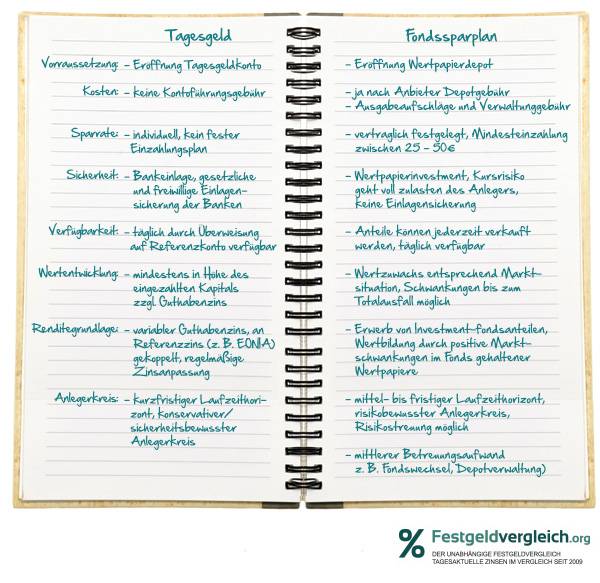 Tagesgeld
Vorraussetzung: - Eröffnung Tagesgeldkonto
Kosten: - keine Kontoführungsgebühr
Sparrate: - individuell, kein fester
Einzahlungsplan
Sicherheit: - Bankeinlage, gesetzliche
und freiwillige Einlagen-
sicherung der Banken
Verfügbarkeit: - täglich durch Überweisung
auf Referenzkonto verfügbar
Wertentwicklung: - mindestens in Höhe des
eingezahlten Kapitals
zzgl. Guthabenzins
Renditegrundlage: - variabler Guthabenzins, an
Referenzzins (z. B. EONIA)
gekoppelt, regelmäßige
Zinsanpassung
Anlegerkreis: - kurzfristiger Laufzeithori-
zont, konservativer/
sicherheitsbewusster
Anlegerkreis
Fondssparplan
- Eröffnung Wertpapierdepot
- ja nach Anbieter Depotgebühr
- Ausgabeaufschläge und Verwaltunggebühr
- vertraglich festgelegt, Mindesteinzahlung
zwischen 25 - 50€
- Wertpapierinvestment, Kursrisiko
geht voll zulasten des Anlegers,
keine Einlagensicherung
- Anteile können jederzeit verkauft
werden, täglich verfügbar
- Wertzuwachs entsprechend Markt-
situation, Schwankungen bis zum
Totalausfall möglich
- Erwerb von Investment-fondsanteilen,
Wertbildung durch positive Markt-
schwankungen im Fonds gehaltener
Wertpapiere
- mittel- bis fristiger Laufzeithorizont,
risikobewusster Anlegerkreis,
Risikostreuung möglich
- mittlerer Betreuungsaufwand
z. B. Fondswechsel, Depotverwaltung)
% Festgeldvergleich.org
DER UNABHÄNGIGE FESTGELDVERGLEICH
TAGESAKTUELLE ZINSEN IM VERGLEICH SEIT 2009